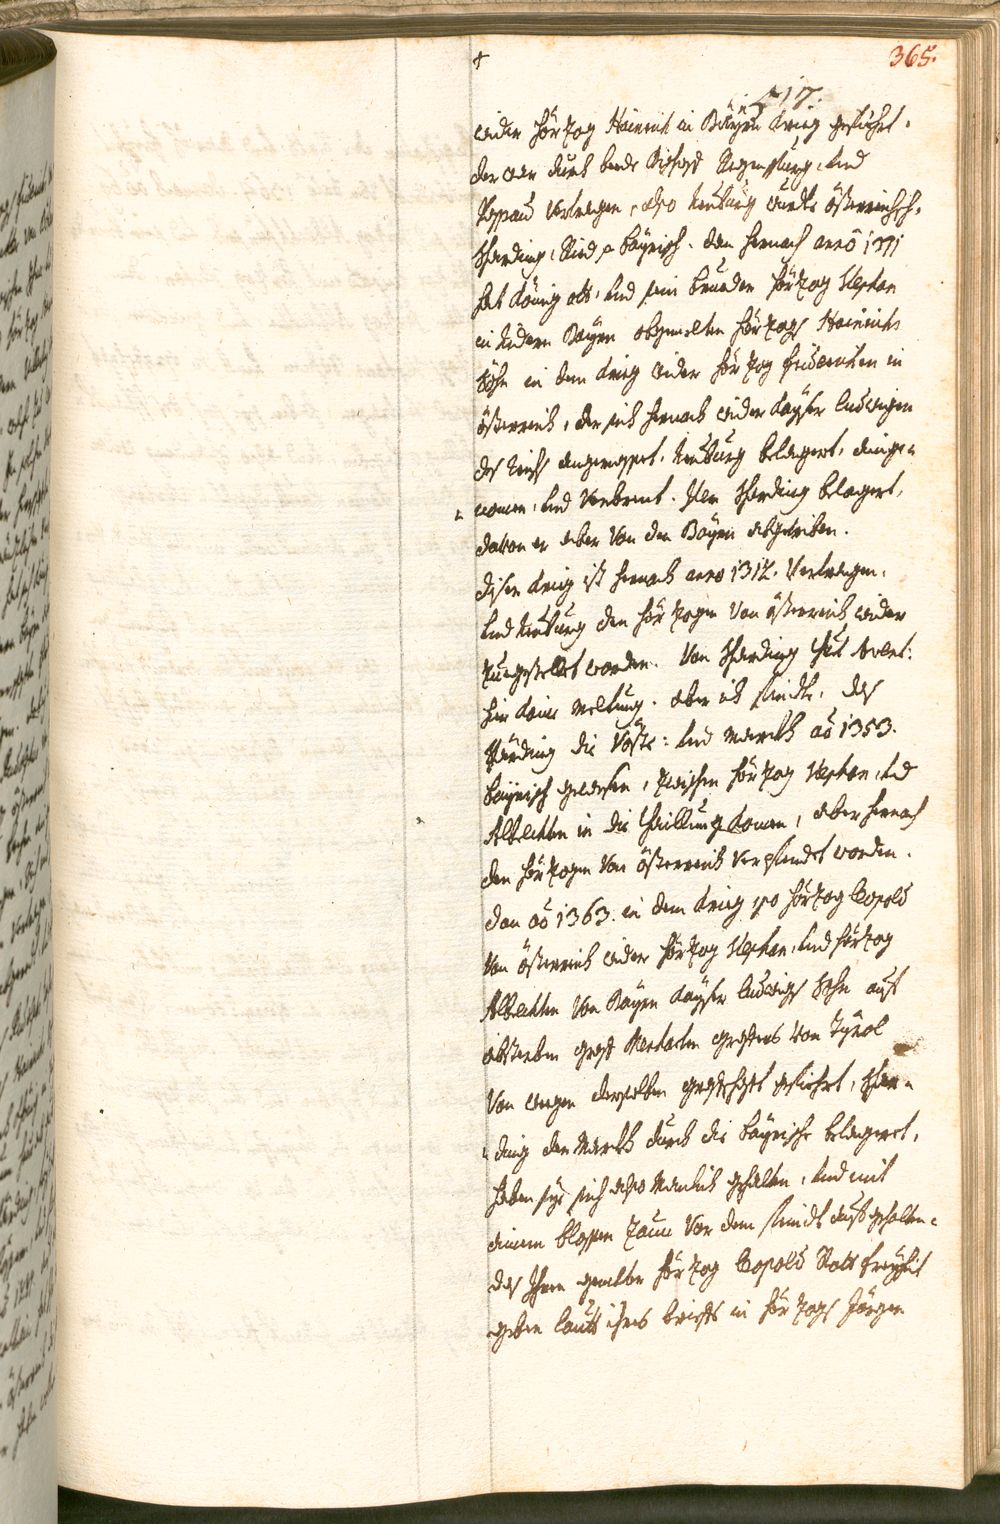 365.
217.
wider Hörzog Hainrich in Bäyrn Krieg gefüehrt,
der war durch beede Bischoff Regenspurg, und
Passau vertragen, also Neuburg wurdte Österreichisch,
Scharding, Ried Bayrisch. dan hernach anno 1311
hat König otto, und sein brueder Hörzog Stephan
in Nidern Bayrn obgemelten Hörzogs Hainrichs
Söhn in dem Krieg wider Hörzog Friderichen in
Österreich, der sich hernach wider Kayser Ludwigen
des Reichs angemasset, Neuburg belegert, einge=
nomen, und Verbrent. Item Scharding belegert,
davon er aber von den Bayrn abgetriben.
diser Krieg ist hernach anno 1312. Vertragen,
und Neuburg den Hörzogen von Österreich wider
zuegestellet worden. Von Scharding thuet Avent:
hier keine meltung. aber ich findte, das
Schärding die Vösste: und Marckh ao 1353.
bayrisch gewesen, zwischen Hörzog Stephan, und
Albrechten in die thaillung komen, aber hernach
den Hörzogen von Österreich verpfendet worden.
dan ao 1363. in dem Krieg so Hörzog Leopold
von Österreich wider Hörzog Stephan, und Hörzog
Albrechten von Bayrn Kayser Ludwigs Sohn auf
absterben graff Meinharten grafens von Tyrol
von wegen derselben graffschafft gefüehrt, Schar=
ding den Marckh durch die bayrische belegert,
haben sye sich also Manlich gehalten, und mit
einem blossen zaun vor dem feindt aufgehalten,
das Ihnen gemelter Hörzog Leopold Statt freyheit
geben lauth ihres briefs in Hörzogs Jörgen